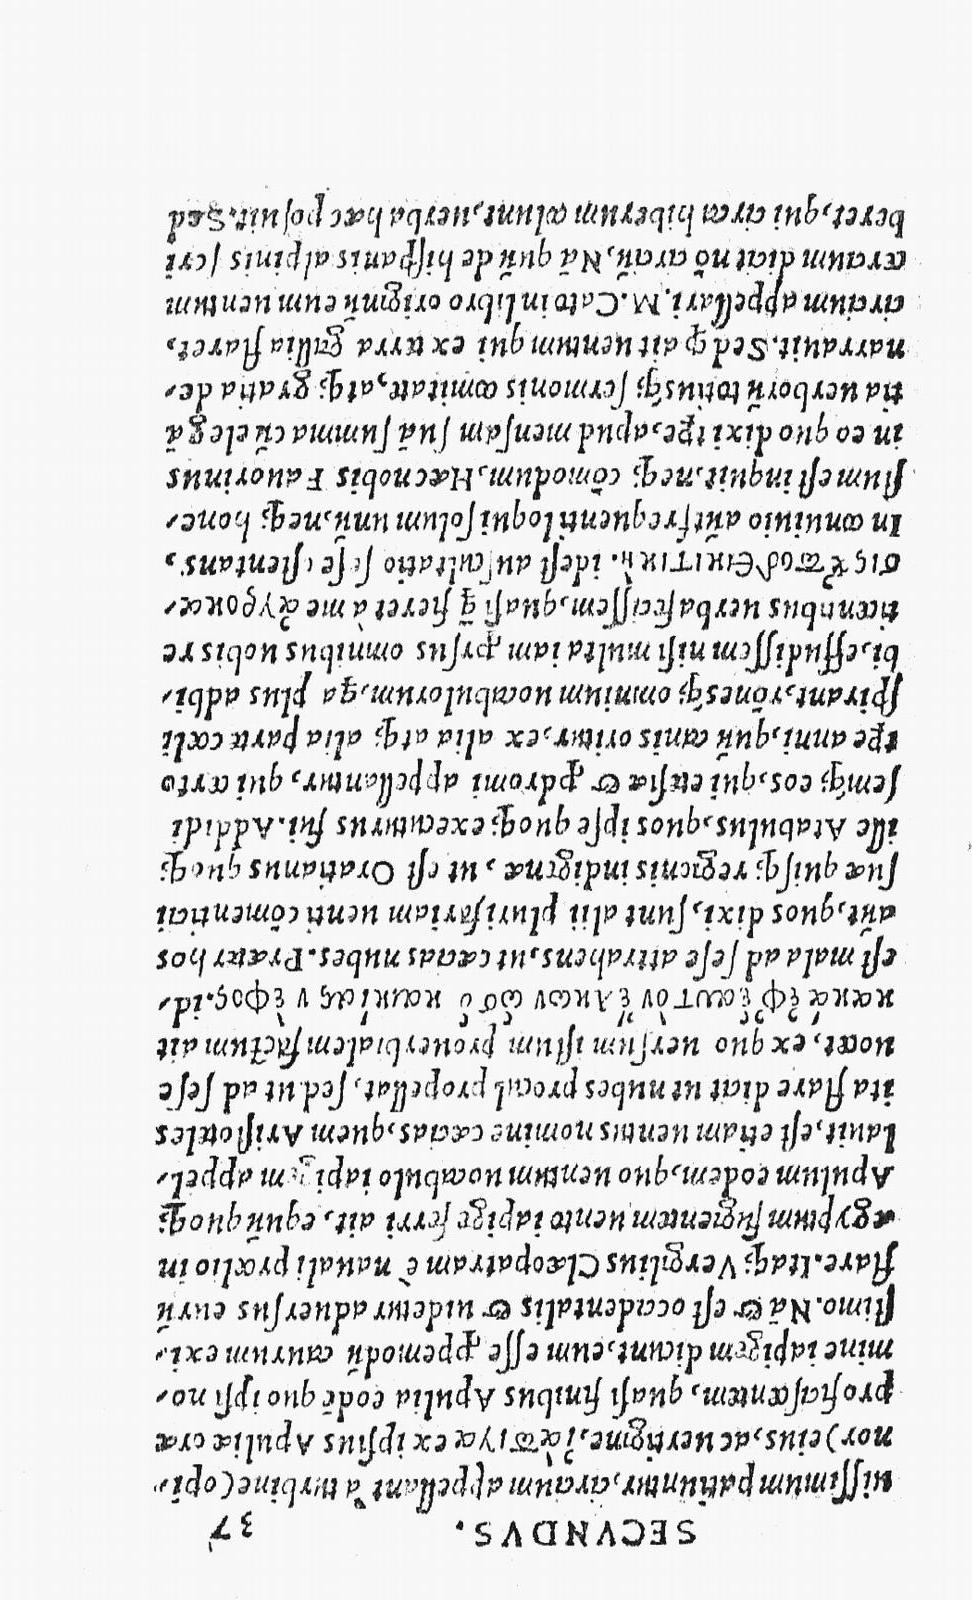 SECVNDVS. 37
uissimum patiuntur, circium appellant à turbine (opi-
nor) eius, ac uertigine, ἰάπυγα ex ipsius Apuliæ oræ
proficiscentem, quasi finibus Apulia eodē quo ipsi no-
mine iapigem dicunt, eum esse ꝓpemodū caurum exi-
stimo. Nā & est occidentalis & uidetur aduersus eurū
flare. Itaq; Vergilius Clæopatram è nauali prælio in
ægyptum fugientem uento iapige ferri ait, equū quoq;
Apulum eodem, quo uentum uocabulo iapigem appel-
lauit, est etiam uentus nomine cæcias, quem Aristoteles
ita flare dicit ut nubes procul propellat, sed ut ad sese
uocet, ex quo uersum istum prouerbialem factum ait
κακὰ ἐφ᾽ ἑαυτὸν ἕλκων ὡσ ὁ καικίας νέφος. id,
est mala ad sese attrahens, ut cæcias nubes. Præter hos
aūt, quos dixi, sunt alii plurifariam uenti cōmenticii
suæ quisq; regienis indigenæ, ut est Oratianus quoq;
ille Atabulus, quos ipse quoq; executurus fui. Addidi
semq; eos, qui etesiæ & ꝓdromi appellantur, qui certo
tꝑe anni, quū canis oritur, ex alia atq; alia parte cœli
spirant, rōnesq; omnium uocabulorum, ꝗa plus adbi-
bi, effudissem nisi multa iam ꝓrsus omnibus uobis re
ticentibus uerba fecissem, quasi ꝗ fieret à me ἀγροκα-
σις ἐπιδεικτικὴ. idest auscultatio sese ostentans,
In conuiuio aūt frequenti loqui solum unū, neq; hone-
stum est inquit, neq; cōmodum, Hæc nobis Fauorinus
in eo quo dixi tꝑe, apud mensam suā summa cū elegā
tia uerborū totiusq; sermonis comitate, atq; gratia de-
narrauit. Sed ꝙ ait uentum qui ex terra gallia flaret,
circium appellari. M. Cato in libro originū eum uentum
cercium dicit nō circiū, Nā quū de hispanis alpinis scri
beret, qui circa hiberum colunt, uerba hæc posuit. Sed